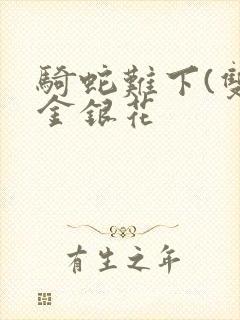 騎蛇難下(雙
金銀花
有生之年